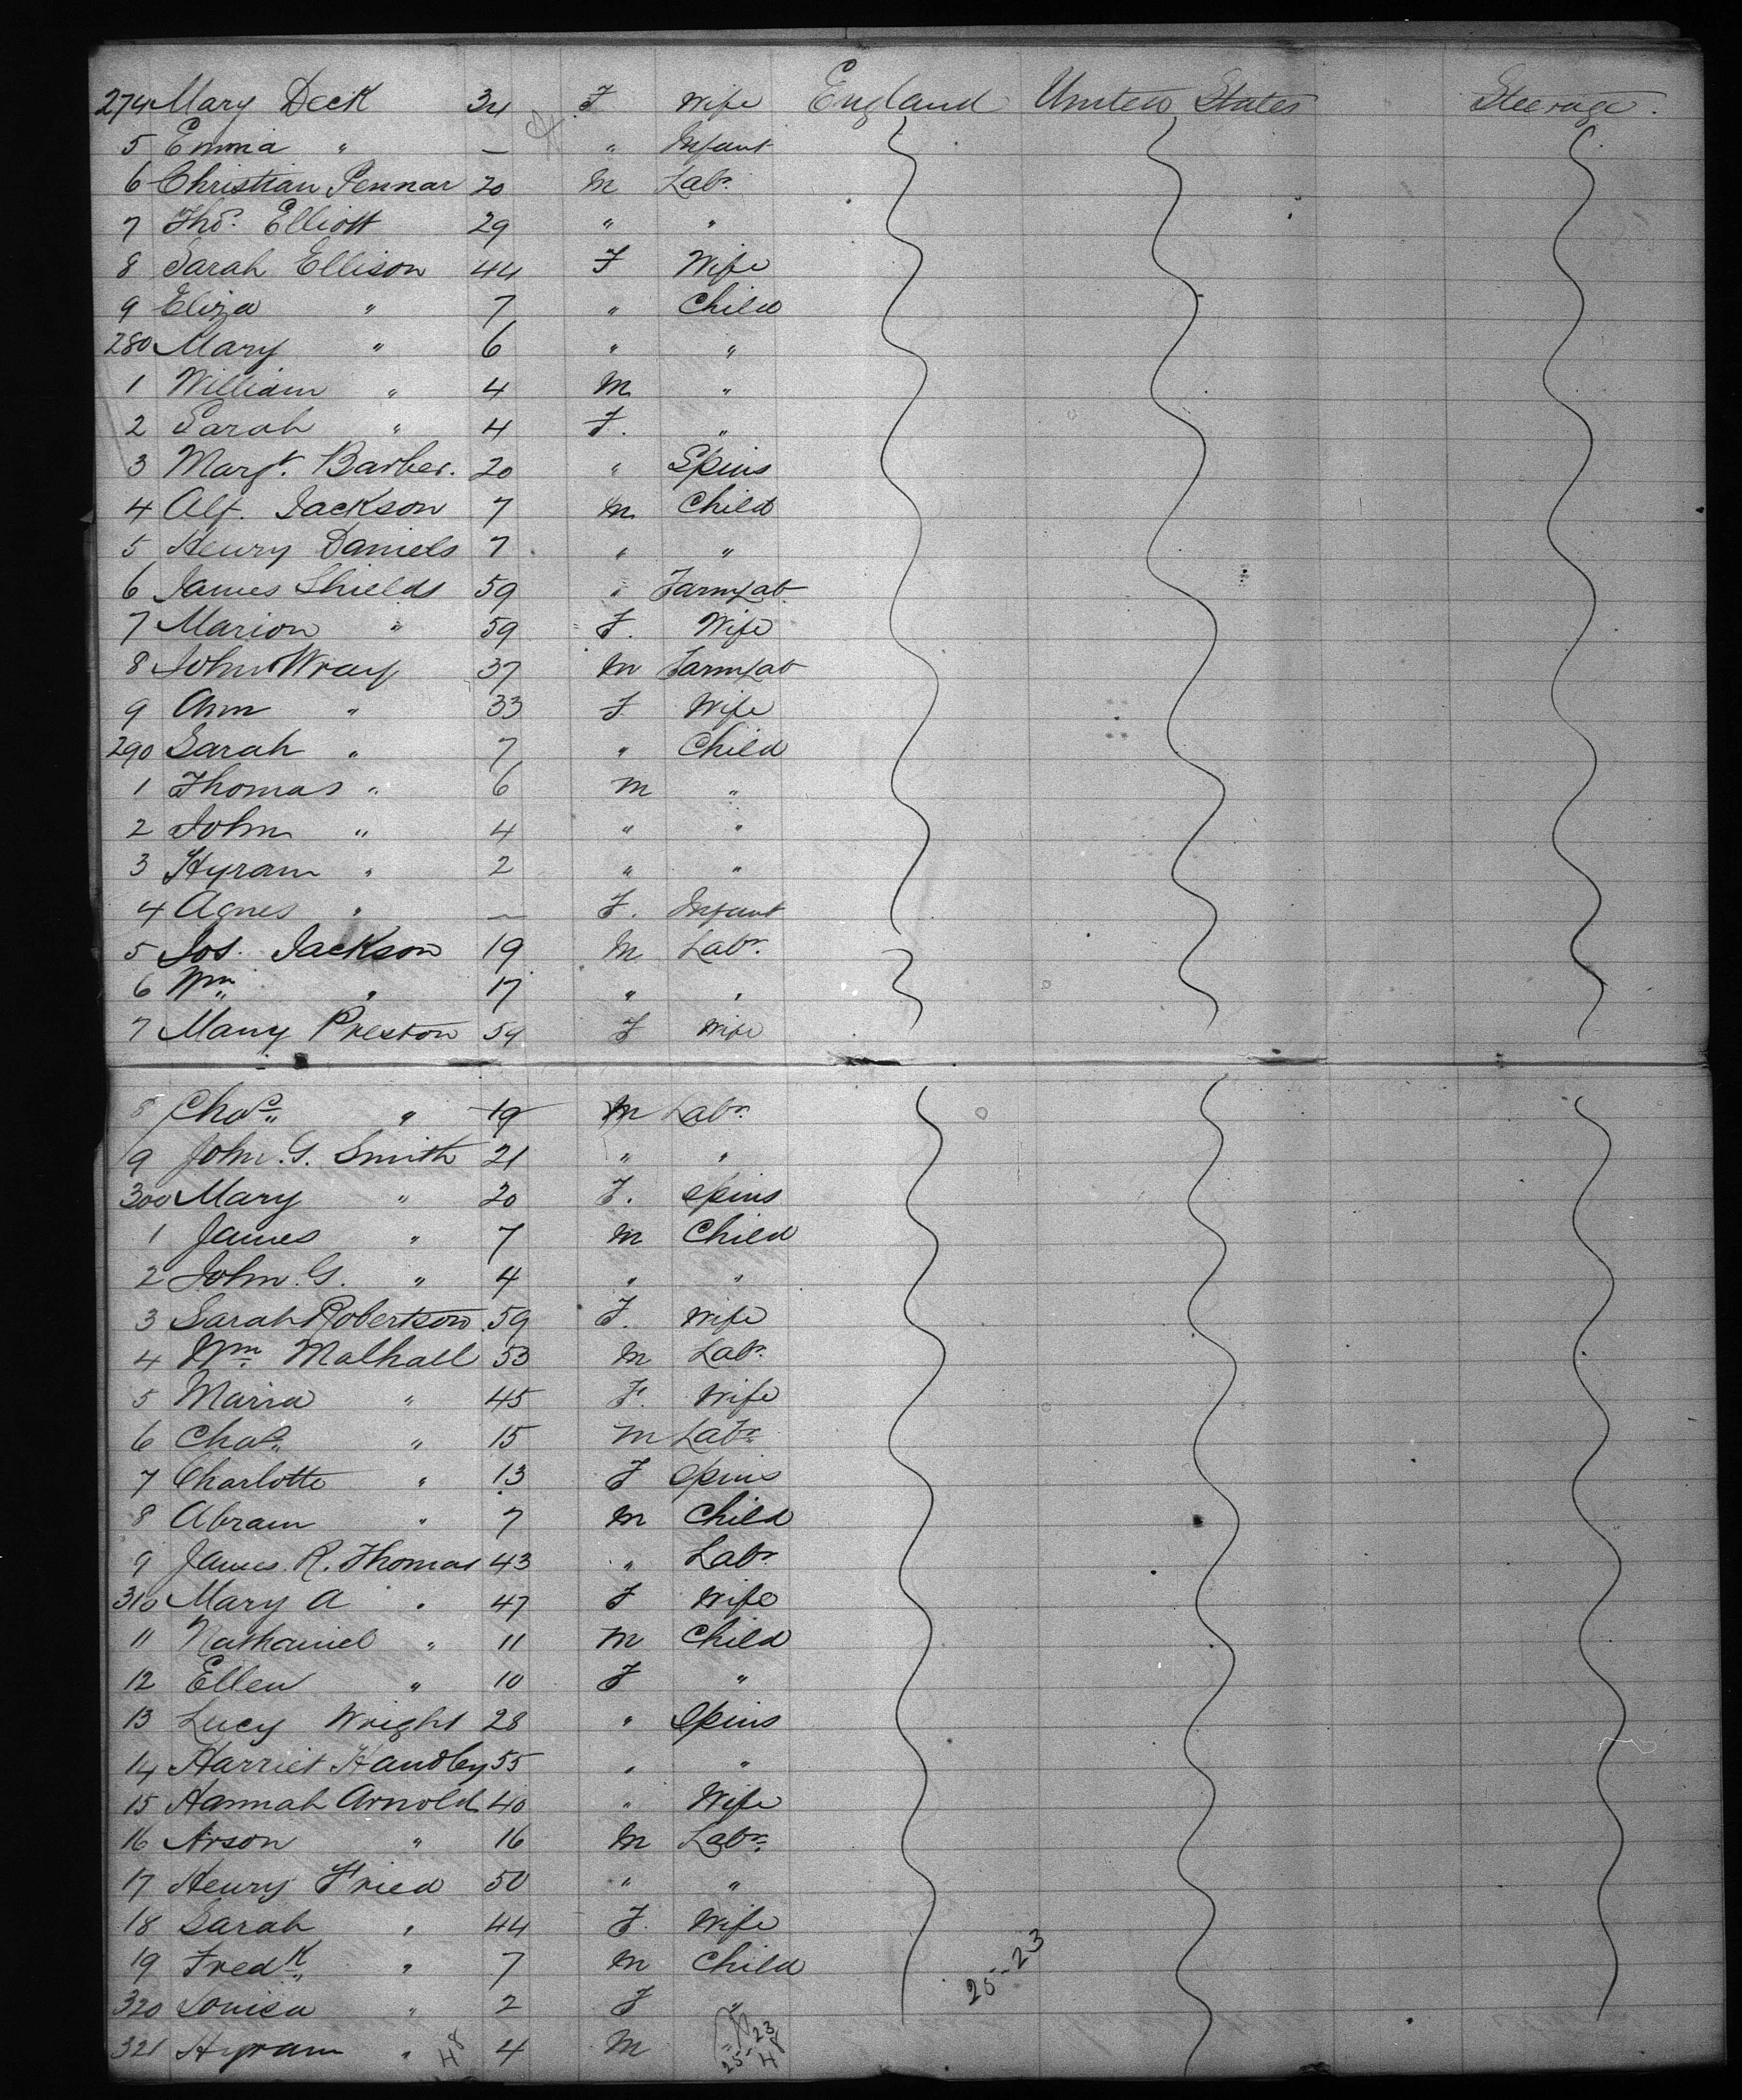 274 Mary Deck 34 F Wife England United States Steerage.
5 Emma " — " Infant
6 Christian Pennar 20 M Labr.
7 Thos. Elliott 29 " "
8 Sarah Ellison 44 F Wife
9 Eliza " 7 " Child
280 Mary " 6 " "
1 William " 4 M "
2 Sarah " 4 F. "
3 Margt. Barber. 20 " Spins
4 Alf. Jackson 7 M Child
5 Henry Daniels 7 " "
6 James Shields 59 " Farm Lab
7 Marion " 59 F. Wife
8 John Wray 37 M Farm Lab
9 Ann " 33 F Wife
290 Sarah " 7 " Child
1 Thomas " 6 M "
2 John " 4 " "
3 Hyram " 2 " "
4 Agnes " — F. Infant
5 Jos. Jackson 19 M Labr.
6 Wm " 17 " "
7 Mary Preston 54 F Wife
8 Chas " 19 M Labr.
9 John. G. Smith 21 " "
300 Mary " 20 F. Spins
1 James " 7 M Child
2 John. G. " 4 " "
3 Sarah Robertson 59 F. Wife
4 Wm Malhall 53 M Labr.
5 Maria " 45 F. Wife
6 Chas " 15 M Labr.
7 Charlotte " 13 F Spins
8 Abram " 7 M Child
9 James. R. Thomas 43 " Labr.
310 Mary A " 47 F Wife
11 Nathaniel " 11 M Child
12 Ellen " 10 F "
13 Lucy Wright 28 " Spins
14 Harriet Handley 55 " "
15 Hannah Arnold 40 " Wife
16 Arson " 16 M Labr.
17 Henry Fried 50 " "
18 Sarah " 44 F. Wife
19 Fredk " 7 M Child
320 Louisa " 2 F "
321 Hyram " 4 M
48
25-23
48
25-23